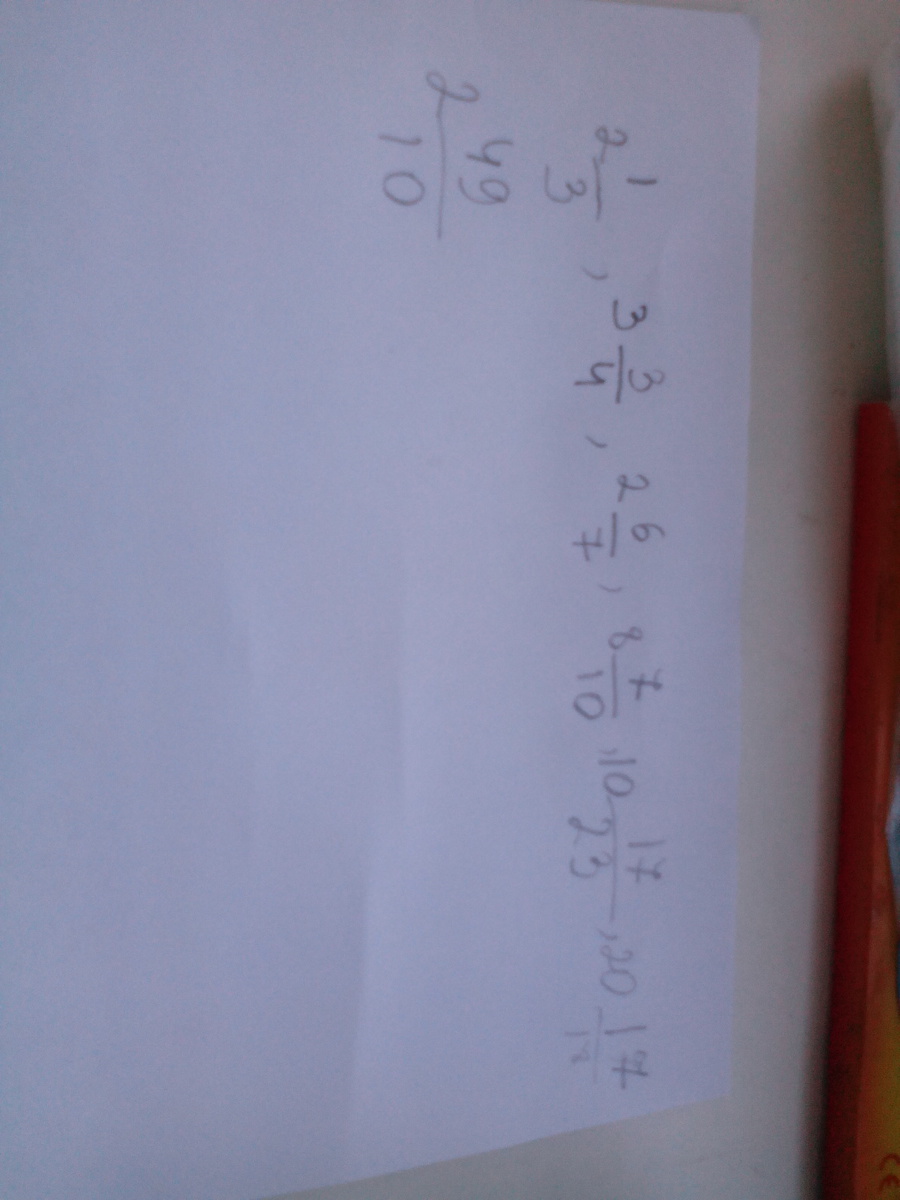 2 1/3 , 3 3/4 , 2 6/7 , 8 7/10 , 10 17/23 , 20 17
2 49/10